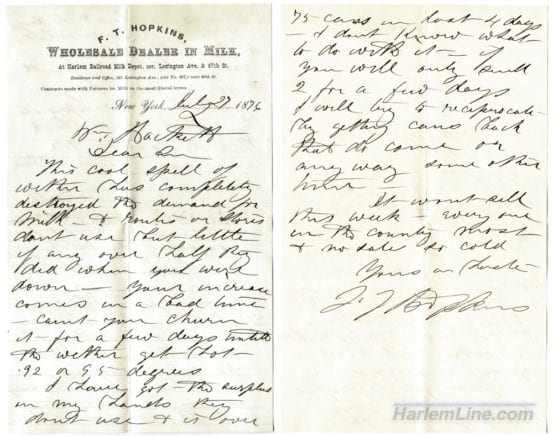 F. T. HOPKINS,
WHOLESALE DEALER IN MILK,
At Harlem Railroad Milk Depot, cor. Lexington Ave. & 47th St.
Residence and Office,
Contracts made with Farmers for Milk on the most liberal terms.
New York, July 27 1876
Hackett
Dear Sir
This cool spell of
wether has completely
destroyed the demand for
Milk - & routes or stores
dont use but little
if any over half they
did when you were
down - your increase
comes in a bad time
- cant you churn
it for a few days untill
the wether get hot -
92 or 95 degrees
I have got the surplus
on my hands they
dont use & is over
75 cans in last 4 days
- I dont know what
to do with it - if
you will only send
2 for a few days
I will try to reciprocate
by getting cans back
that do come or
any way some other
time -
It wont sell
this week - every one
in the country most
& no sale so cold
Yours in haste
F. T. Hopkins
HarlemLine.com